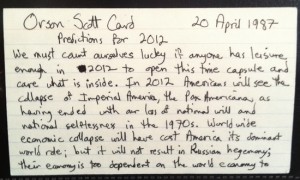 Orson Scott Card 20 April 1987
Predictions for 2012
We must count ourselves lucky if anyone has leisure
enough in 2012 to open this time capsule and
care what is inside. In 2012 Americans will see the
collapse of Imperial America, the Pax Americana, as
having ended with our loss of national will and
national selflessness in the 1970s. Worldwide
economic collapse will have cost America its dominant
world role; but it will not result in Russian hegemony;
their economy is too dependent on the world economy to